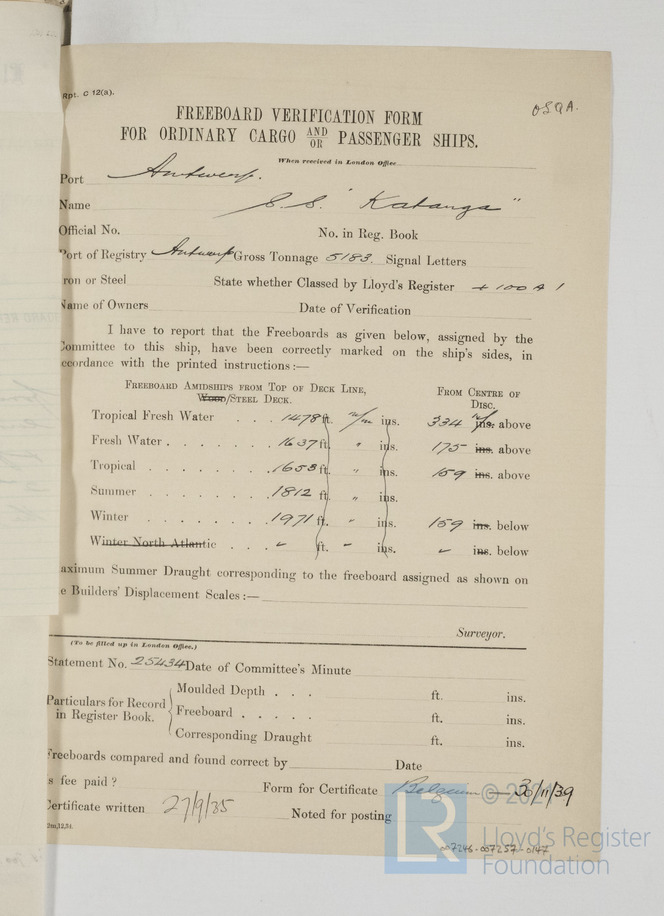 Rpt. C 12(a).
OSQA.
FREEBOARD VERIFICATION FORM
FOR ORDINARY CARGO AND/OR PASSENGER SHIPS.
When received in London Office
Port Antwerp.
Name S.S. "Katanga"
Official No. No. in Reg. Book
Port of Registry Antwerp Gross Tonnage 5183. Signal Letters
Iron or Steel State whether Classed by Lloyd's Register + 100 A 1
Name of Owners Date of Verification
I have to report that the Freeboards as given below, assigned by the
Committee to this ship, have been correctly marked on the ship's sides, in
ccordance with the printed instructions:—
FREEBOARD AMIDSHIPS FROM TOP OF DECK LINE, FROM CENTRE OF
WOOD/STEEL DECK. DISC.
Tropical Fresh Water . . . 1478 ft. m/m ins. 334 m/m ins. above
Fresh Water . . . . . . . 1637 ft. " ins. 175 ins. above
Tropical . . . . . . . . 1653 ft. " ins. 159 ins. above
Summer . . . . . . . . 1812 ft. " ins.
Winter . . . . . . . . 1971 ft. " ins. 159 ins. below
Winter North Atlantic . . . - ft. - ins. - ins. below
aximum Summer Draught corresponding to the freeboard assigned as shown on
e Builders' Displacement Scales:—
Surveyor.
(To be filled up in London Office.)
Statement No. 25434 Date of Committee's Minute
Particulars for Record in Register Book.
Moulded Depth . . . ft. ins.
Freeboard . . . . . ft. ins.
Corresponding Draught ft. ins.
Freeboards compared and found correct by Date
s fee paid? Form for Certificate Belgium — 30/11/39
Certificate written 27/9/35 Noted for posting
2m,12,34.
LR
Lloyd's Register
Foundation
007246-007257-0147